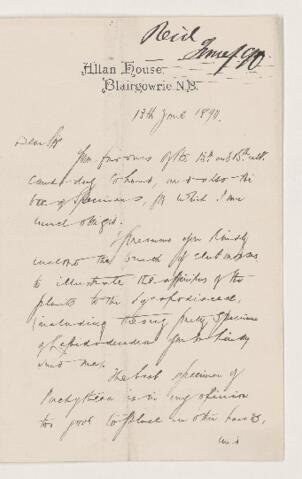 Reid
June/90
Allan House,
Blairgowrie N.B.
13th June 1890.
Dear Sir
Your favours of the 12th and 13th ult.
came duly to hand, and also the
box of specimens, for which I am
much obliged.
I presume you kindly
enclose the branch of club moss
to illustrate the affinities of the
plants to the Lycopodiaceae,
including the very pretty specimen
of Lepidodendron you so kindly
sent me.
The best specimen of
is in my opinion
too good to place in other hands,
and